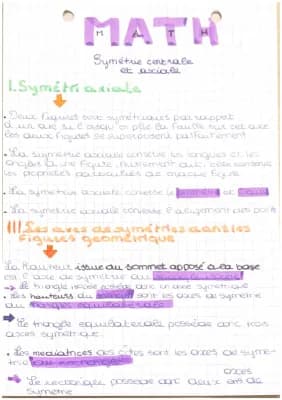 MATH
Symétrie centrale
et axiale
I. Symétri axiale
• Deux figures sont symétriques par rapport
d'un axe si lorsqu'on plie la feuille sur cet axe
les deux figures se superposent parfaitement
• La symétrie axiale conserve les longueurs et les
angles d'une figure, autrement dit, elle conserve
les propriétés particulières de chaque figure
• La symétrie axiale conserve le périmètre et l'aire
• La symétrie axiale conserve l'alignement des points
III Les axes de symétries dans les
Figures géométrique
La Hauteur issue du sommet opposé à la base
est l'axe de symétrie du
→ Le triangle isocèle possède donc un axe symétrique
• Les hauteurs du sont les axes de symétrie
du triangle équilatérale
→ Le triangle équilatérale possède donc trois
axes symétrique.
• Les mediatrices des côtés sont les axes de symé-
trie du rectangle
→ Le rectangle possède donc deux axes de
symétrie